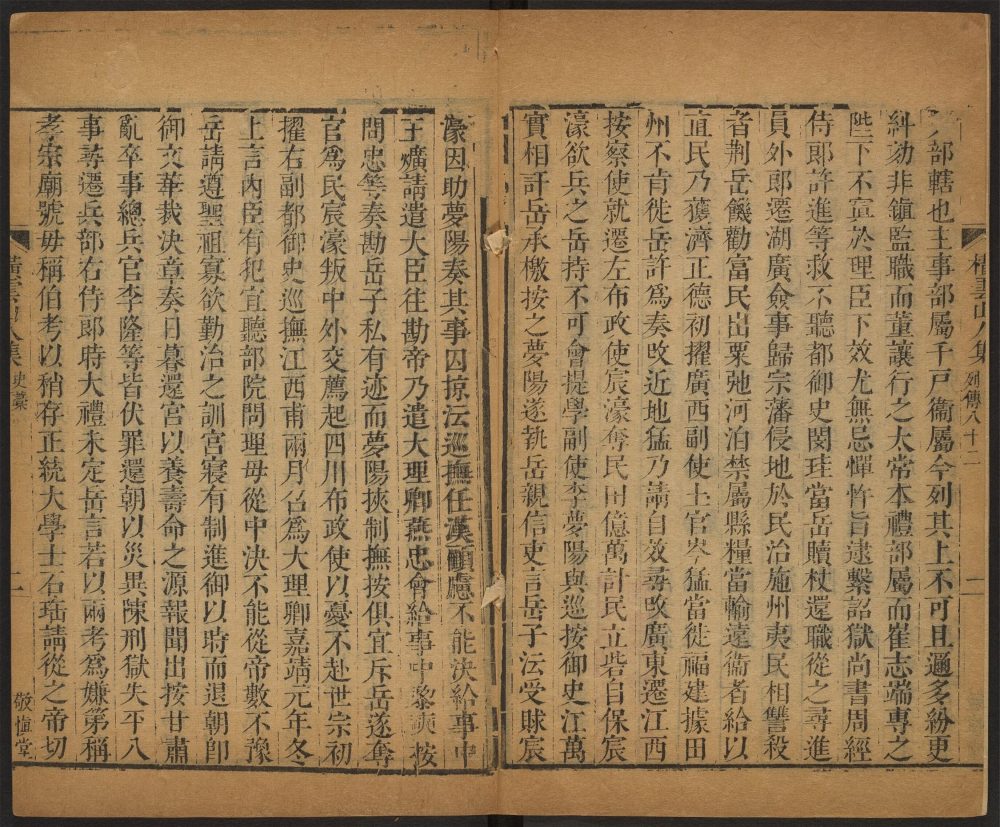 部轄也主事部屬千戸衞屬今列其上不可且邇多紛更
糾劾非鎮監職而董讓行之太常本禮部屬而崔志端專之
陛下不宣於理臣下效尤無忌憚忤旨逮繫詔獄尚書周經
侍郎許進等救不聽都御史閔珪當岳贖杖還職從之尋進
員外郎遷湖廣僉事歸宗藩侵地於民治施州夷民相讐殺
者荆岳饑勸富民出粟弛河泊禁屬縣糧當輸遠衞者給以
直民乃獲濟正德初擢廣西副使土官岑猛當徙福建據田
州不肯徙岳許爲奏改近地猛乃請自效尋改廣東遷江西
按察使就遷左布政使宸濠奪民田億萬計民立砦自保宸
濠欲兵之岳持不可會提學副使李夢陽與巡按御史江萬
實相訐岳承檄按之夢陽遂執岳親信吏言岳子沄受賕宸
橫雲山人集 列傳八十二 一
濠因助夢陽奏其事囚掠沄巡撫任漢顧慮不能決給事中
王爌請遣大臣往勘帝乃遣大理卿燕忠會給事中黎奭按
問忠等奏勘岳子私有迹而夢陽挾制撫按俱宜斥岳遂奪
官爲民宸濠叛中外交薦起四川布政使以憂不赴世宗初
擢右副都御史巡撫江西甫兩月召爲大理卿嘉靖元年冬
上言內臣有犯宜聽部院問理毋從中決不能從帝數不豫
岳請遵聖祖寡欲勤治之訓宮寢有制進御以時而退朝即
御文華裁決章奏日暮還宮以養壽命之源報聞出按甘肅
亂卒事總兵官李隆等皆伏罪還朝以災異陳刑獄失平八
事尋遷兵部右侍郎時大禮未定岳言若以兩考爲嫌第稱
孝宗廟號毋稱伯考以稍存正統大學士石珤請從之帝切
橫雲山人集 史藁 二 敬愼堂